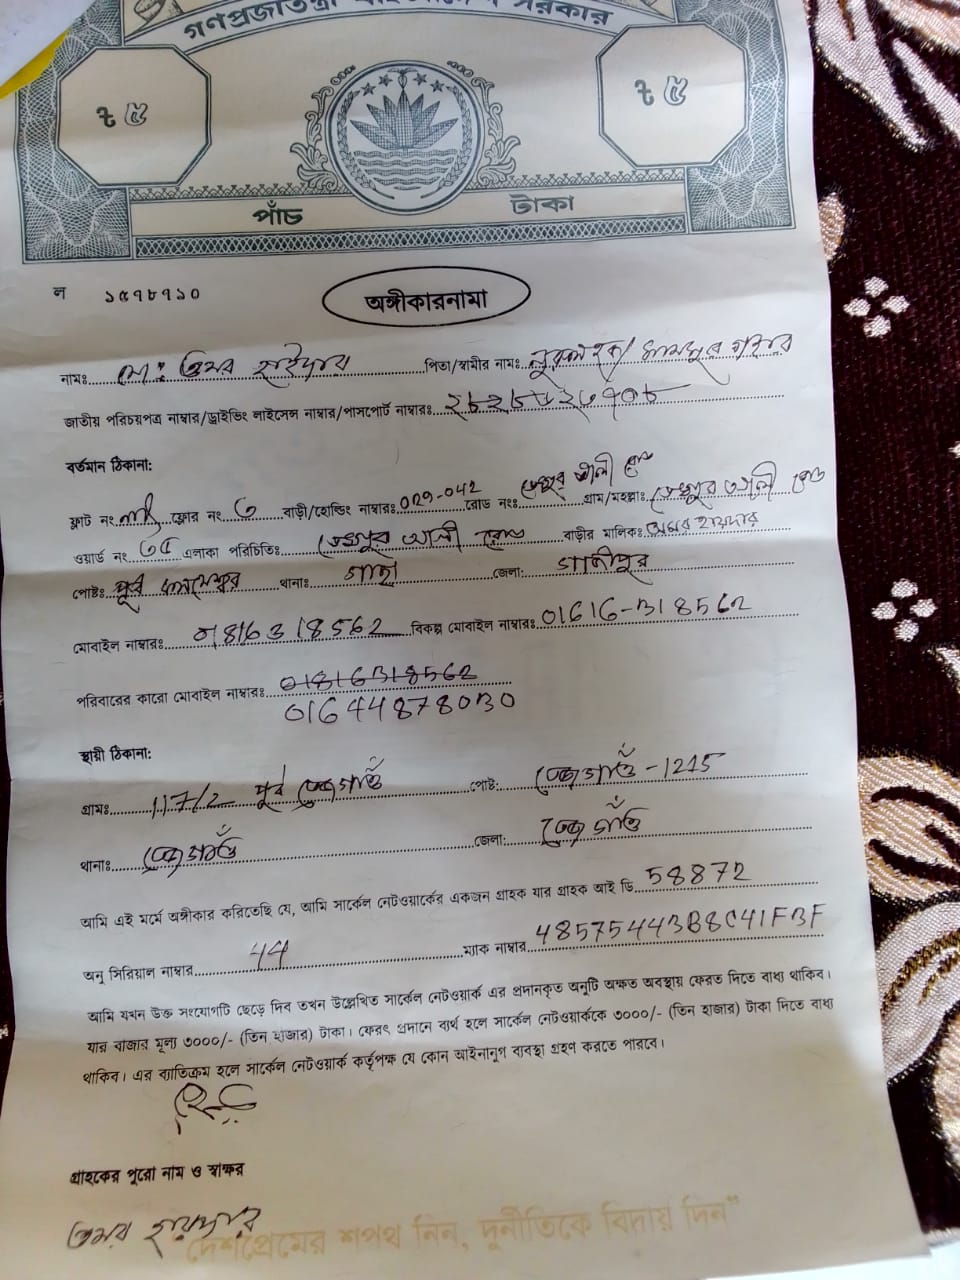 গণপ্রজাতন্ত্রী বাংলাদেশ সরকার
৳ ৫ ৳ ৫
পাঁচ টাকা
ল ১৫৭৮৭১০
অঙ্গীকারনামা
নামঃ মোঃ ওমর হাইদার পিতা/স্বামীর নামঃ
জাতীয় পরিচয়পত্র নাম্বার/ড্রাইভিং লাইসেন্স নাম্বার/পাসপোর্ট নাম্বারঃ
বর্তমান ঠিকানা:
ফ্লাট নং ফ্লোর নং ৩ বাড়ী/হোল্ডিং নাম্বারঃ রোড নংঃ গ্রাম/মহল্লাঃ
ওয়ার্ড নং ৩৫ এলাকা পরিচিতিঃ আলী রোড বাড়ীর মালিকঃ ওমর হায়দার
পোষ্টঃ পূর্ব থানাঃ গাছা জেলা: গাজীপুর
মোবাইল নাম্বারঃ 01816318562 বিকল্প মোবাইল নাম্বারঃ 01616-318562
পরিবারের কারো মোবাইল নাম্বারঃ 01816318562
01644878030
স্থায়ী ঠিকানা:
গ্রামঃ 117/2 পূর্ব তেজগাঁও পোষ্ট: তেজগাঁও - 1215
থানাঃ তেজগাঁও জেলা: তেজগাঁও
আমি এই মর্মে অঙ্গীকার করিতেছি যে, আমি সার্কেল নেটওয়ার্কের একজন গ্রাহক যার গ্রাহক আই ডি 58872
অনু সিরিয়াল নাম্বার 44 ম্যাক নাম্বার 48575443B8C41FBF
আমি যখন উক্ত সংযোগটি ছেড়ে দিব তখন উল্লেখিত সার্কেল নেটওয়ার্ক এর প্রদানকৃত অনুটি অক্ষত অবস্থায় ফেরত দিতে বাধ্য থাকিব।
যার বাজার মূল্য ৩০০০/- (তিন হাজার) টাকা। ফেরৎ প্রদানে ব্যর্থ হলে সার্কেল নেটওয়ার্ককে ৩০০০/- (তিন হাজার) টাকা দিতে বাধ্য
থাকিব। এর ব্যাতিক্রম হলে সার্কেল নেটওয়ার্ক কর্তৃপক্ষ যে কোন আইনানুগ ব্যবস্থা গ্রহণ করতে পারবে।
গ্রাহকের পুরো নাম ও স্বাক্ষর
ওমর হায়দার
দেশপ্রেমের শপথ নিন, দুর্নীতিকে বিদায় দিন"